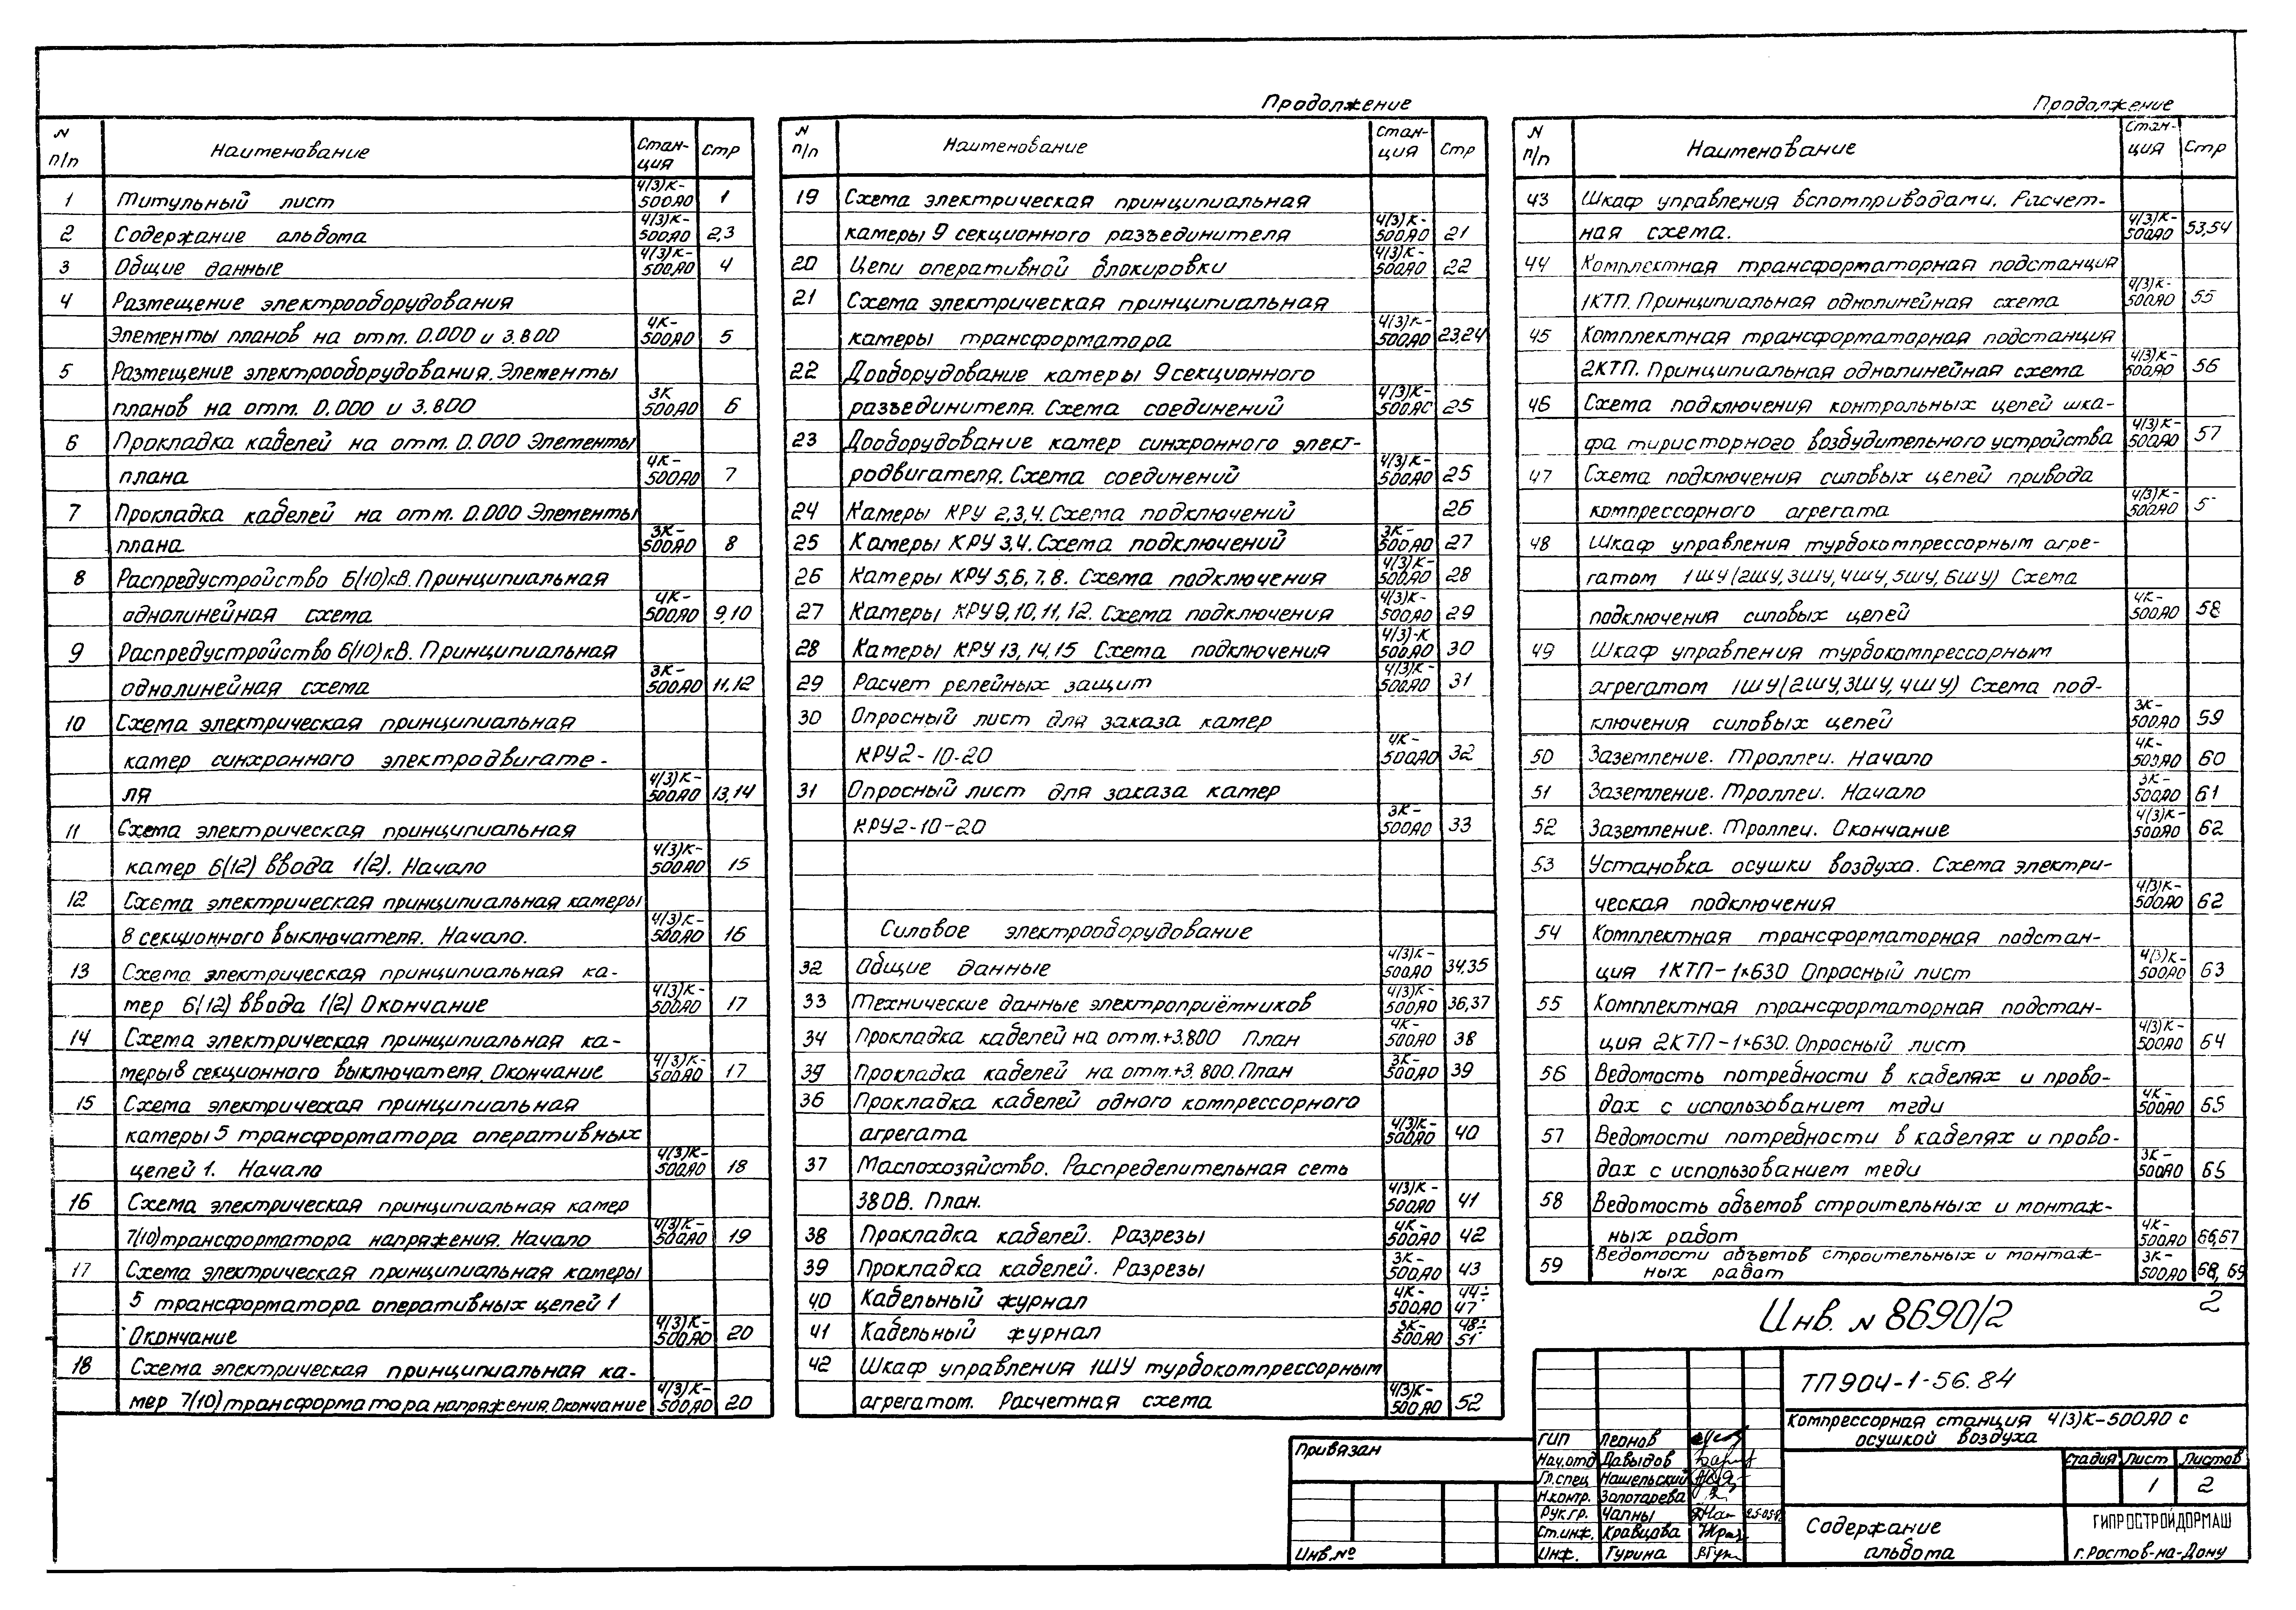 N п/п Наименование Стан-ция Стр
1 Титульный лист 4(3)К-500А0 1
2 Содержание альбома 4(3)К-500А0 2,3
3 Общие данные 4(3)К-500А0 4
4 Размещение электрооборудования
Элементы планов на отм. 0.000 и 3.800 4К-500А0 5
5 Размещение электрооборудования. Элементы
планов на отм. 0.000 и 3.800 3К 500А0 6
6 Прокладка кабелей на отм. 0.000 Элементы
плана 4К-500А0 7
7 Прокладка кабелей на отм. 0.000 Элементы
плана 3К-500А0 8
8 Распредустройство 6(10)кВ. Принципиальная
однолинейная схема 4К-500А0 9,10
9 Распредустройство 6(10)кВ. Принципиальная
однолинейная схема 3К-500А0 11,12
10 Схема электрическая принципиальная
камер синхронного электродвигате-
ля 4(3)К-500А0 13,14
11 Схема электрическая принципиальная
камер 6(12) ввода 1(2). Начало 4(3)К-500А0 15
12 Схема электрическая принципиальная камеры
8 секционного выключателя. Начало. 4(3)К-500А0 16
13 Схема электрическая принципиальная ка-
мер 6(12) ввода 1(2) Окончание 4(3)К-500А0 17
14 Схема электрическая принципиальная ка-
меры 8 секционного выключателя. Окончание 4(3)К-500А0 17
15 Схема электрическая принципиальная
камеры 5 трансформатора оперативных
цепей 1. Начало 4(3)К-500А0 18
16 Схема электрическая принципиальная камер
7(10) трансформатора напряжения. Начало 4(3)К-500А0 19
17 Схема электрическая принципиальная камеры
5 трансформатора оперативных цепей 1
Окончание 4(3)К-500А0 20
18 Схема электрическая принципиальная ка-
мер 7(10) трансформатора напряжения. Окончание 4(3)К-500А0 20
Продолжение
N п/п Наименование Стан-ция Стр
19 Схема электрическая принципиальная
камеры 9 секционного разъединителя 4(3)К-500А0 21
20 Цепи оперативной блокировки 4(3)К-500А0 22
21 Схема электрическая принципиальная
камеры трансформатора 4(3)К-500А0 23,24
22 Дооборудование камеры 9 секционного
разъединителя. Схема соединений 4(3)К-500А0 25
23 Дооборудование камер синхронного элект-
родвигателя. Схема соединений 4(3)К-500А0 25
24 Камеры КРУ 2,3,4. Схема подключений 26
25 Камеры КРУ 3,4. Схема подключений 3К-500А0 27
26 Камеры КРУ 5,6,7,8. Схема подключения 4(3)К-500А0 28
27 Камеры КРУ 9,10,11,12. Схема подключения 4(3)К-500А0 29
28 Камеры КРУ 13,14,15 Схема подключения 4(3)-К 500А0 30
29 Расчет релейных защит 4(3)К-500А0 31
30 Опросный лист для заказа камер
КРУ2-10-20 4К-500А0 32
31 Опросный лист для заказа камер
КРУ2-10-20 3К-500А0 33
Силовое электрооборудование
32 Общие данные 4(3)К-500А0 34,35
33 Технические данные электроприёмников 4(3)К-500А0 36,37
34 Прокладка кабелей на отм.+3.800 План 4К-500А0 38
35 Прокладка кабелей на отм.+3.800. План 3К-500А0 39
36 Прокладка кабелей одного компрессорного
агрегата 4(3)К-500А0 40
37 Маслохозяйство. Распределительная сеть
380В. План. 4(3)К-500А0 41
38 Прокладка кабелей. Разрезы 4К-500А0 42
39 Прокладка кабелей. Разрезы 3К-500А0 43
40 Кабельный журнал 4К-500А0 44÷47
41 Кабельный журнал 3К-500А0 48÷51
42 Шкаф управления 1ШУ турбокомпрессорным
агрегатом. Расчетная схема 4(3)К-500А0 52
Продолжение
N п/п Наименование Стан-ция Стр
43 Шкаф управления вспомприводами. Расчет-
ная схема. 4(3)К-500А0 53,54
44 Комплектная трансформаторная подстанция
1КТП. Принципиальная однолинейная схема 4(3)К-500А0 55
45 Комплектная трансформаторная подстанция
2КТП. Принципиальная однолинейная схема 4(3)К-500А0 56
46 Схема подключения контрольных цепей шка-
фа тиристорного возбудительного устройства 4(3)К-500А0 57
47 Схема подключения силовых цепей привода
компрессорного агрегата 4(3)К-500А0
48 Шкаф управления турбокомпрессорным агре-
гатом 1ШУ(2ШУ,3ШУ,4ШУ,5ШУ,6ШУ) Схема
подключения силовых цепей 4К-500А0 58
49 Шкаф управления турбокомпрессорным
агрегатом 1ШУ(2ШУ,3ШУ,4ШУ) Схема под-
ключения силовых цепей 3К-500А0 59
50 Заземление. Троллеи. Начало 4К-500А0 60
51 Заземление. Троллеи. Начало 3К-500А0 61
52 Заземление. Троллеи. Окончание 4(3)К-500А0 62
53 Установка осушки воздуха. Схема электри-
ческая подключения 4(3)К-500А0 62
54 Комплектная трансформаторная подстан-
ция 1КТП-1×630 Опросный лист 4(3)К-500А0 63
55 Комплектная трансформаторная подстан-
ция 2КТП-1×630. Опросный лист 4(3)К-500А0 64
56 Ведомость потребности в кабелях и прово-
дах с использованием меди 4К-500А0 65
57 Ведомости потребности в кабелях и прово-
дах с использованием меди 3К-500А0 65
58 Ведомость объемов строительных и монтаж-
ных работ 4К-500А0 66,67
59 Ведомости объемов строительных и монтаж-
ных работ 3К-500А0 68,69
Инв. N 8690/2 2
ТП 904-1-56.84
Компрессорная станция 4(3)К-500А0 с
осушкой воздуха
Стадия Лист Листов
1 2
Содержание
альбома
ГИПРОСТРОЙДОРМАШ
г. Ростов-на-Дону
ГИП Леонов
Нач.отд Давыдов
Гл.спец Нашельский
Н.контр. Золотарева
Рук.гр. Чапны
Ст.инж. Кравцова
Инж. Гурина
Привязан
Инв.№